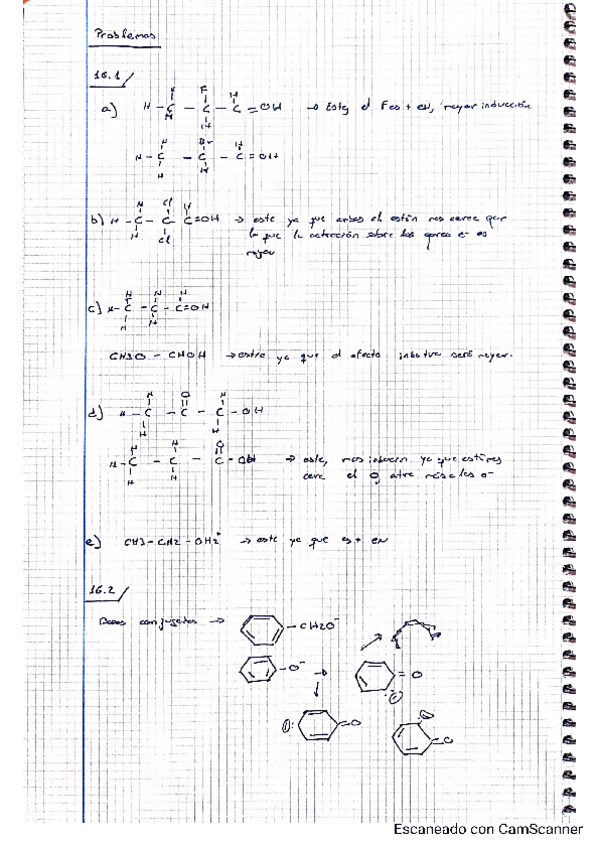 Problemas
16.1
a) H - C - C - C = OH → Este, el F es + EN, mayor inducción
H F H
H H
H - C - C - C = OH
H Br H
H H
b) H - C - C - C = OH → este ya que ambos cl están mas cerca que
H Cl H
H Cl
lo que la atracción sobre los pares e- es
mayor
c) H - C - C - C = OH
H H H
H H
CH3O - CHOH → este ya que el efecto inductivo será mayor.
d) H - C - C - C - OH
H O H
H H
H - C - C - C - OH → este, ya que
H H O
H H
cerca el O, atrae más a los e-
e) CH3 - CH2 - OH2+ → este ya que es + EN
16.2
Bases conjugadas →
- CH2O-
- O- →
= O
= O
= O
Escaneado con CamScanner